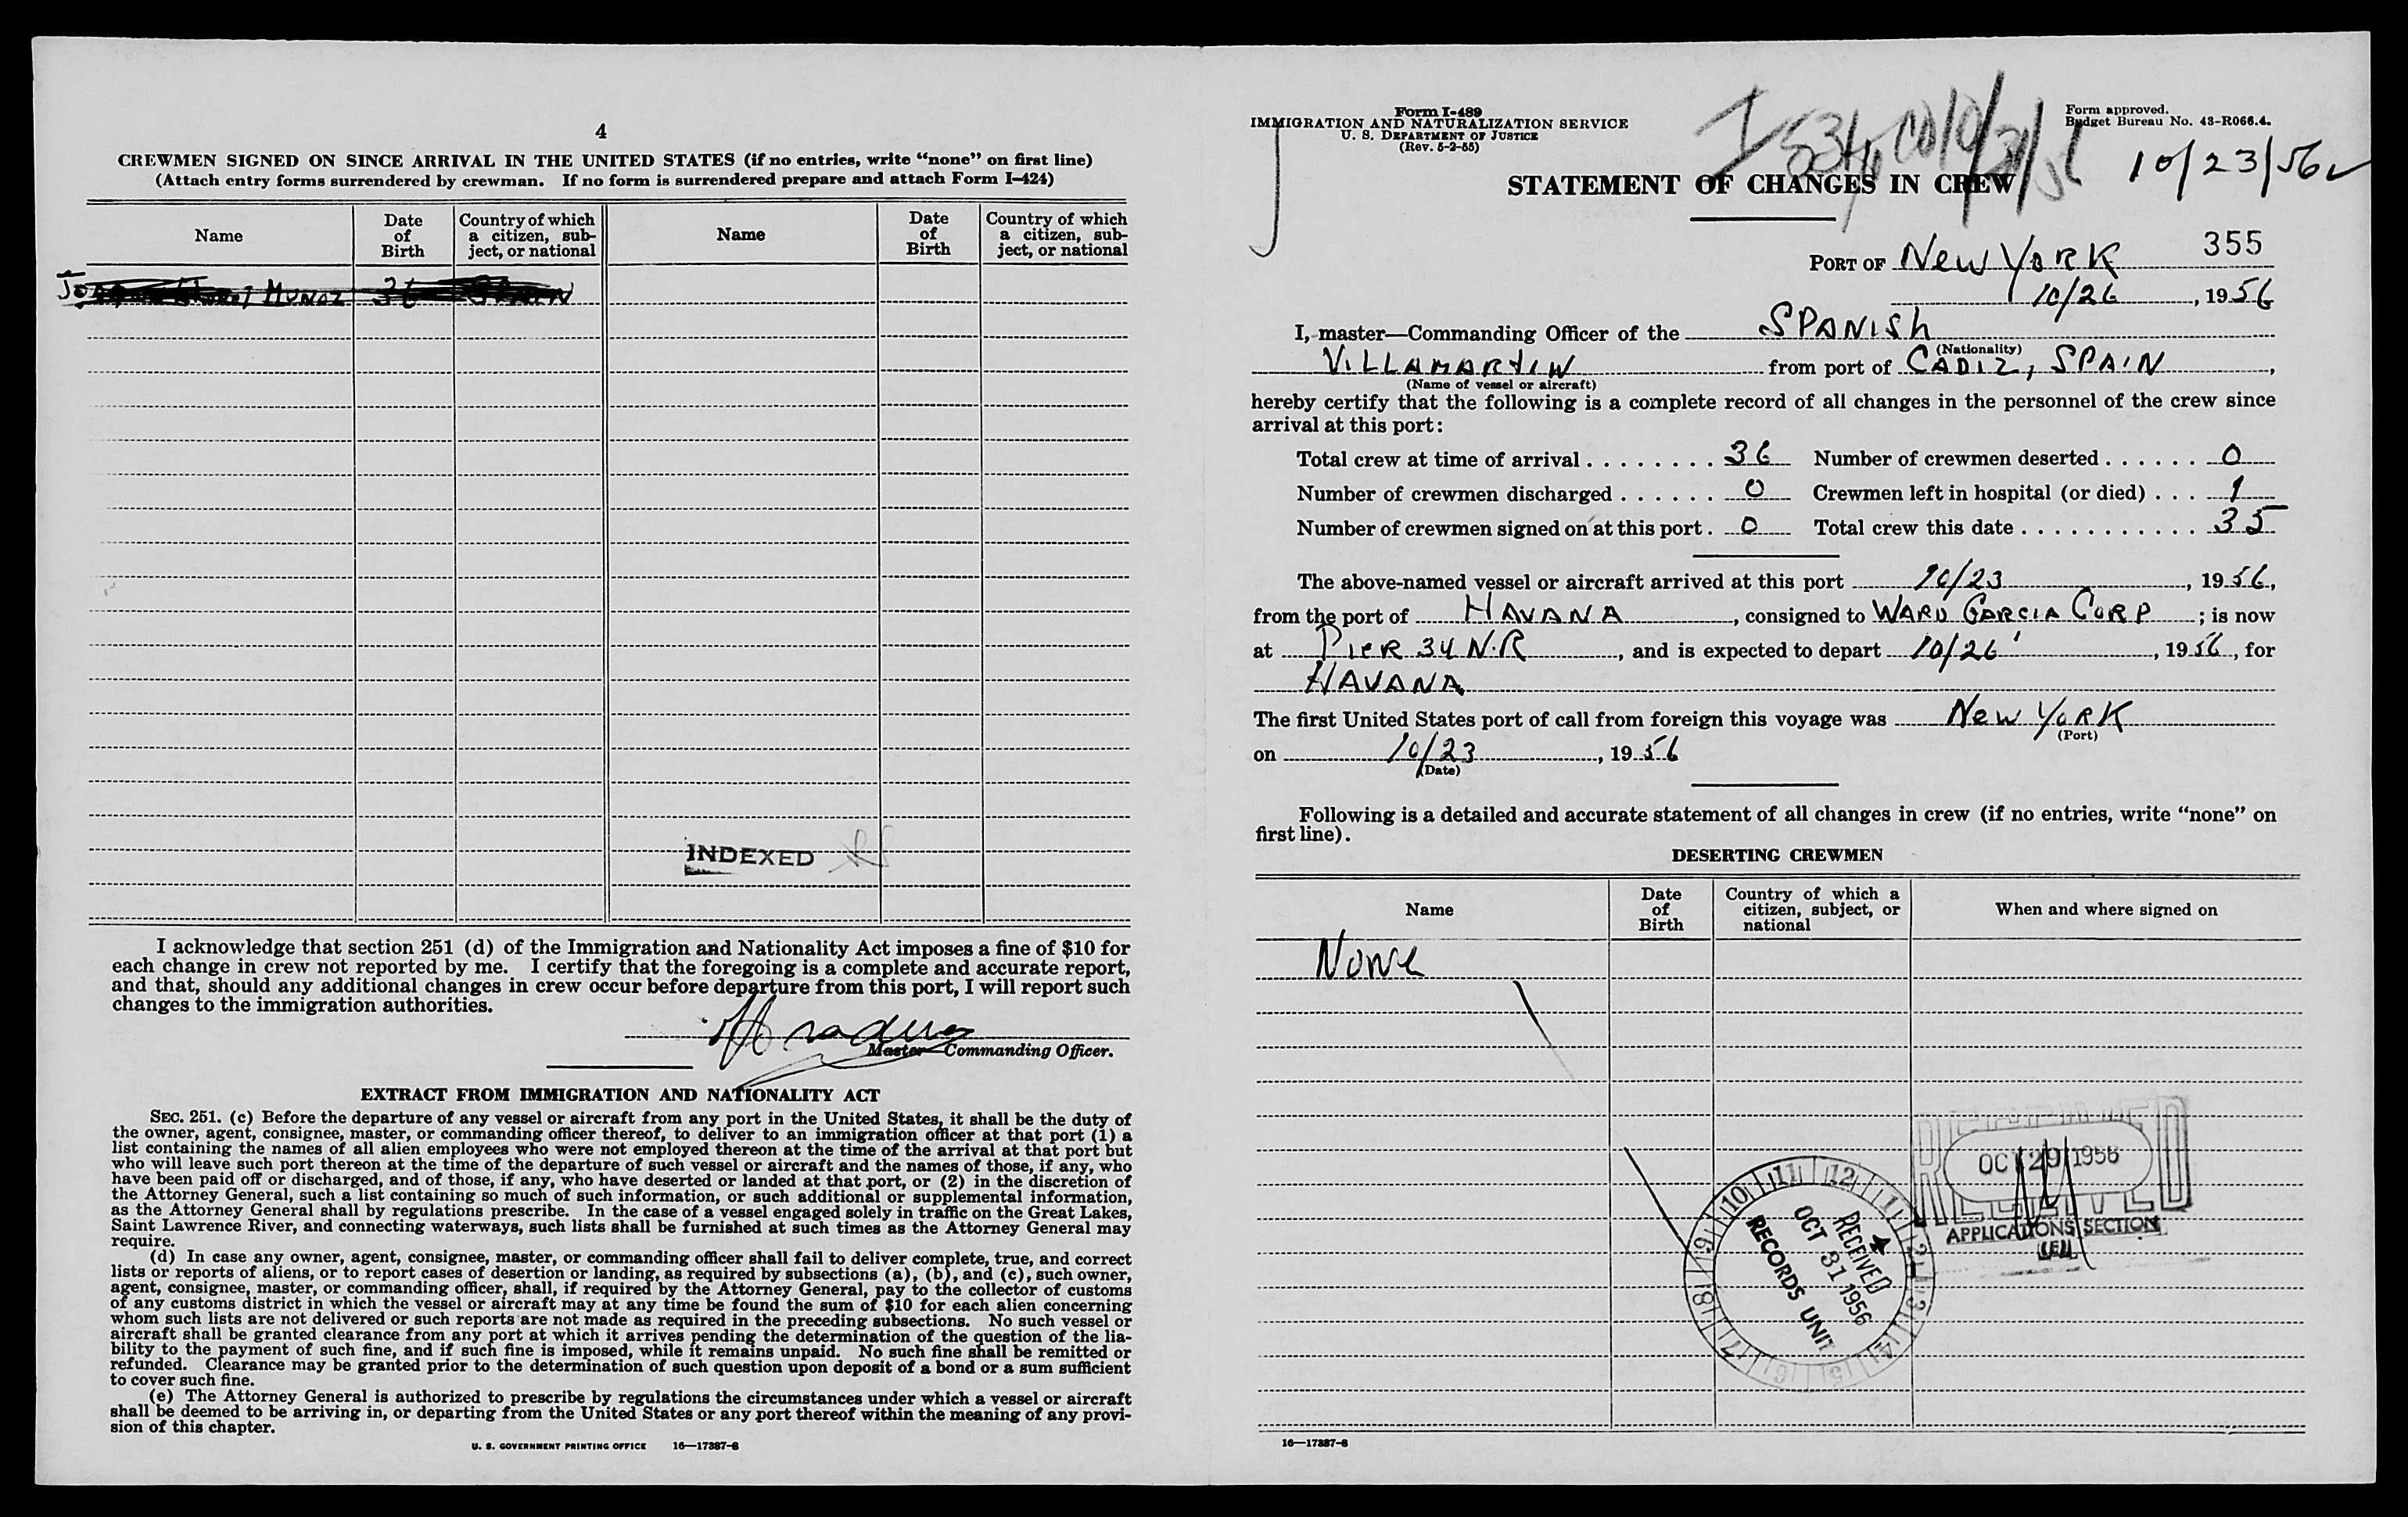 4
CREWMEN SIGNED ON SINCE ARRIVAL IN THE UNITED STATES (if no entries, write “none” on first line)
(Attach entry forms surrendered by crewman. If no form is surrendered prepare and attach Form I-424)
Name
Date of Birth
Country of which a citizen, subject, or national
Name
Date of Birth
Country of which a citizen, subject, or national
MUNOZ 36 SPAIN
INDEXED
I acknowledge that section 251 (d) of the Immigration and Nationality Act imposes a fine of $10 for
each change in crew not reported by me. I certify that the foregoing is a complete and accurate report,
and that, should any additional changes in crew occur before departure from this port, I will report such
changes to the immigration authorities.
Master—Commanding Officer.
EXTRACT FROM IMMIGRATION AND NATIONALITY ACT
SEC. 251. (c) Before the departure of any vessel or aircraft from any port in the United States, it shall be the duty of
the owner, agent, consignee, master, or commanding officer thereof, to deliver to an immigration officer at that port (1) a
list containing the names of all alien employees who were not employed thereon at the time of the arrival at that port but
who will leave such port thereon at the time of the departure of such vessel or aircraft and the names of those, if any, who
have been paid off or discharged, and of those, if any, who have deserted or landed at that port, or (2) in the discretion of
the Attorney General, such a list containing so much of such information, or such additional or supplemental information,
as the Attorney General shall by regulations prescribe. In the case of a vessel engaged solely in traffic on the Great Lakes,
Saint Lawrence River, and connecting waterways, such lists shall be furnished at such times as the Attorney General may
require.
(d) In case any owner, agent, consignee, master, or commanding officer shall fail to deliver complete, true, and correct
lists or reports of aliens, or to report cases of desertion or landing, as required by subsections (a), (b), and (c), such owner,
agent, consignee, master, or commanding officer, shall, if required by the Attorney General, pay to the collector of customs
of any customs district in which the vessel or aircraft may at any time be found the sum of $10 for each alien concerning
whom such lists are not delivered or such reports are not made as required in the preceding subsections. No such vessel or
aircraft shall be granted clearance from any port at which it arrives pending the determination of the question of the lia-
bility to the payment of such fine, and if such fine is imposed, while it remains unpaid. No such fine shall be remitted or
refunded. Clearance may be granted prior to the determination of such question upon deposit of a bond or a sum sufficient
to cover such fine.
(e) The Attorney General is authorized to prescribe by regulations the circumstances under which a vessel or aircraft
shall be deemed to be arriving in, or departing from the United States or any port thereof within the meaning of any provi-
sion of this chapter.
U. S. GOVERNMENT PRINTING OFFICE 16—17387-8
Form I-489
IMMIGRATION AND NATURALIZATION SERVICE
U. S. DEPARTMENT OF JUSTICE
(Rev. 5-2-55)
Form approved.
Budget Bureau No. 43-R066.4.
10/23/56
STATEMENT OF CHANGES IN CREW
355
PORT OF New YORK
10/26, 1956
I, master—Commanding Officer of the SPANISh
(Nationality)
VILLAMARTIN from port of CADIZ, SPAIN,
(Name of vessel or aircraft)
hereby certify that the following is a complete record of all changes in the personnel of the crew since
arrival at this port:
Total crew at time of arrival 36 Number of crewmen deserted 0
Number of crewmen discharged 0 Crewmen left in hospital (or died) 1
Number of crewmen signed on at this port 0 Total crew this date 35
The above-named vessel or aircraft arrived at this port 10/23, 1956,
from the port of HAVANA, consigned to WARD GARCIA CORP; is now
at PieR 34 N.R, and is expected to depart 10/26, 1956, for
HAVANA
The first United States port of call from foreign this voyage was New YORK
(Port)
on 10/23, 1956
(Date)
Following is a detailed and accurate statement of all changes in crew (if no entries, write “none” on
first line).
DESERTING CREWMEN
Name
Date of Birth
Country of which a citizen, subject, or national
When and where signed on
None
RECEIVED
OCT 29 1956
APPLICATIONS SECTION
RECEIVED
OCT 31 1956
RECORDS UNIT
10 11 12 1 2 3 4 5 6 7 8 9
16—17387-8